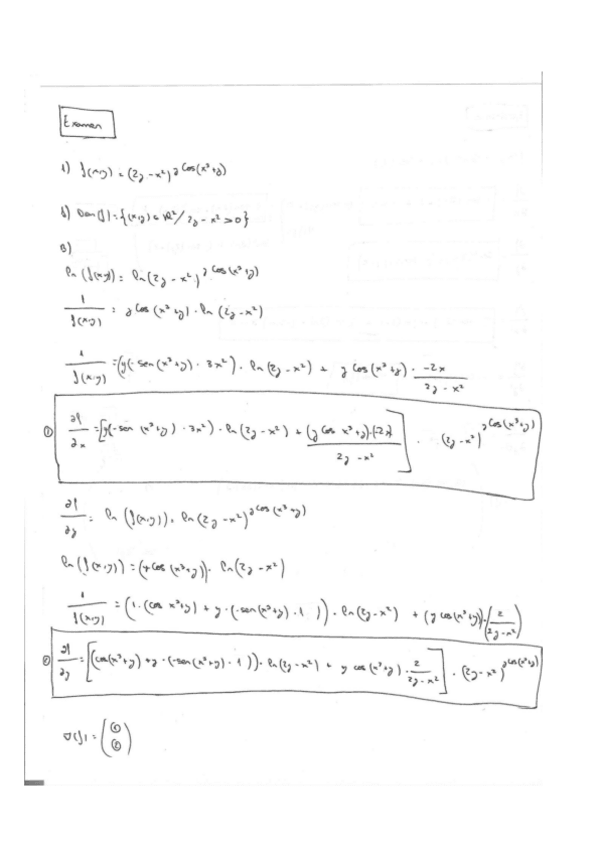 Examen
1) f(x,y) = (2y - x²)^(y cos(x³+y))
b) Dom(f) = {(x,y) ∈ ℝ² / 2y - x² > 0}
B)
ln (f(x,y)) = ln (2y - x²)^(y cos(x³+y))
1/f(x,y) = y cos(x³+y) · ln (2y - x²)
1/f(x,y) = (y(-sen(x³+y) · 3x²) · ln(2y - x²) + y cos(x³+y) · -2x/(2y - x²)
① ∂f/∂x = [y(-sen (x³+y) · 3x²) · ln(2y - x²) + (y cos x³+y)·(-2x)/(2y - x²)] · (2y - x²)^(y cos(x³+y))
∂f/∂y = ln (f(x,y)) = ln (2y - x²)^(y cos(x³+y))
ln (f(x,y)) = (y cos (x³+y)) · ln(2y - x²)
1/f(x,y) = (1·(cos x³+y) + y·(-sen(x³+y)·1)) · ln(2y - x²) + (y cos(x³+y)) · (2/(2y - x²))
② ∂f/∂y = [(cos(x³+y) + y·(-sen(x³+y)·1)) · ln(2y - x²) + y cos(x³+y) · 2/(2y - x²)] · (2y - x²)^(y cos(x³+y))
∇(f) = (① ②)